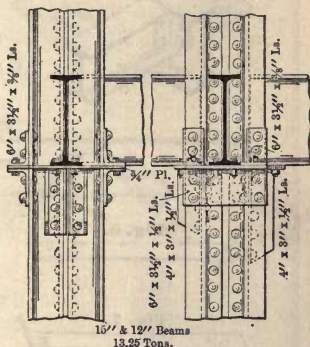 6" x 3½" x ⅜" Ls.
6" x 3½" x ⅜" Ls.
¾" Pl.
6" x 3½" x ½" Ls.
4" x 3" x ½" Ls.
4" x 3" x ½" Ls.
15" & 12" Beams
13.25 Tons.